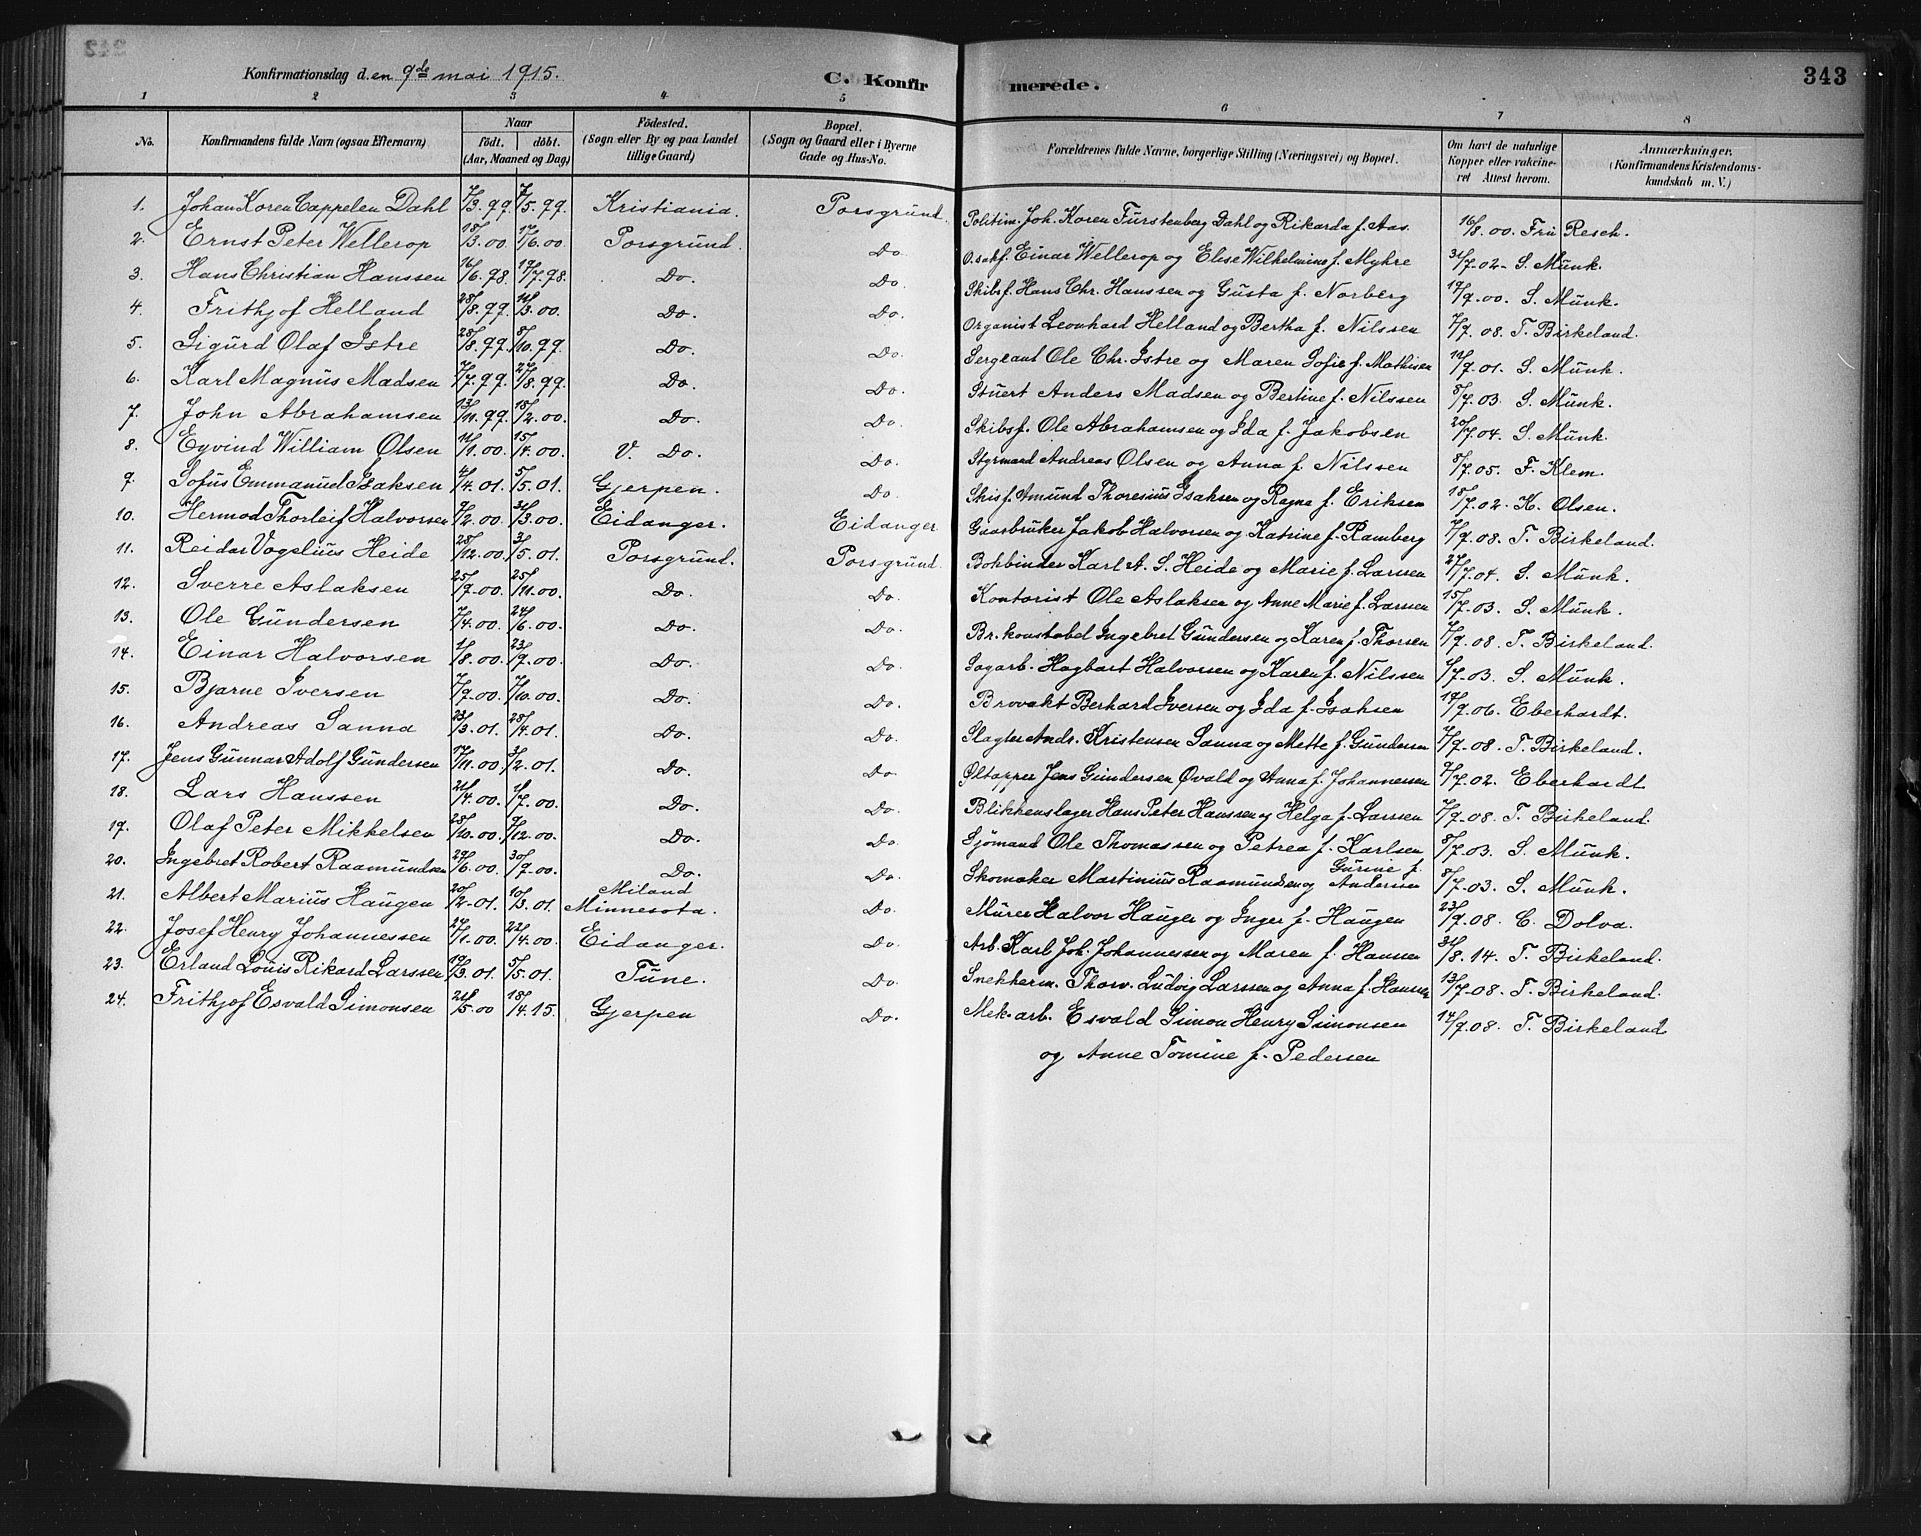 343
Konfirmationsdag den 9de mai 1915.
C. Konfirmerede.
1 2 3 4 5 6 7 8
No. Konfirmandens fulde Navn (ogsaa Efternavn) Naar födt. döbt. (Aar, Maaned og Dag) Födested. (Sogn eller By og paa Landet tillige Gaard) Bopæl. (Sogn og Gaard eller i Byerne Gade og Hus-No. Forældrenes fulde Navne, borgerlige Stilling (Næringsvei) og Bopæl. Om havt de naturlige Kopper eller vakcineret Attest herom. Anmærkninger. (Konfirmandens Kristendomskundskab m. V.)
1. Johan Koren Cappelen Dahl 7/3.99. 7/5.99. Kristiania. Porsgrund. Politim. Joh. Koren Fürstenberg Dahl og Rikarda f. Aas. 16/8.00. Frü Resch.
2. Ernst Peter Wellerop 18/3.00. 17/6.00. Porsgrund. Do. O.sakf. Einar Wellerop og Elise Wilhelmine f. Myhre 31/7.02. S. Munk.
3. Hans Christian Hanssen 16/6.98. 19/7.98. Do. Do. Skibsf. Hans Chr. Hanssen og Gusta f. Norberg 19/9.00. S. Munk.
4. Frithjof Helland 28/8.99. 11/3.00. Do. Do. Organist Leonhard Helland og Bertha f. Nilssen 7/9.08. T. Birkeland.
5. Sigurd Olaf Istre 28/8.99. 8/10.99. Do. Do. Sergeant Ole Chr. Istre og Maren Sofie f. Mathisen 12/9.01. S. Munk.
6. Karl Magnus Madsen 7/7.99. 27/8.99. Do. Do. Stuert Anders Madsen og Bertine f. Nilssen 8/7.03. S. Munk.
7. John Abrahamsen 13/11.99. 18/2.00. Do. Do. Skibsf. Ole Abrahamsen og Ida f. Jakobsen 20/7.04. S. Munk.
8. Eyvind William Olsen 11/1.00. 15/4.00. V. Do. Do. Styrmand Andreas Olsen og Anna f. Nilssen 8/7.05. F. Klem.
9. Sofus Emmanuel Isaksen 4/4.01. 5/5.01. Gjerpen. Do. Skisf. Amund Thoresius Isaksen og Ragna f. Eriksen 18/7.02. K. Olsen.
10. Hermod Thorleif Halvorsen 7/2.00. 31/3.00. Eidanger. Eidanger Gaasbruker Jakob Halvorsen og Katrine f. Ramberg 7/9.08. T. Birkeland.
11. Reidar Vogelius Heide 28/12.00. 3/5.01. Porsgrund. Porsgrund. Bokbinder Karl A. S. Heide og Marie f. Larssen 27/7.04. S. Munk.
12. Sverre Aslaksen 25/9.00. 25/11.00. Do. Do. Kontorist Ole Aslaksen og Anne Marie f. Larssen 15/7.03. S. Munk.
13. Ole Gundersen 7/4.00. 24/6.00. Do. Do. Br. konstabel Ingebret Gundersen og Karen f. Thorsen 7/9.08. T. Birkeland.
14. Einar Halvorsen 1/8.00. 23/9.00. Do. Do. Sagarb. Hagbart Halvorsen og Karen f. Nilssen 1/7.03. S. Munk.
15. Bjarne Iversen 7/9.00. 7/10.00. Do. Do. Brovakt Berhard Iversen og Ida f. Isaksen 19/9.06. Eberhardt.
16. Andreas Sanna 23/3.01. 28/4.01. Do. Do. Slagter Andr. Kristensen Sanna og Mette f. Gundersen 7/9.08. T. Birkeland.
17. Jens Gunnar Adolf Gundersen 17/11.00. 3/2.01. Do. Do. Øltapper Jens Gundersen Øvald og Anna f. Johannessen 2/7.02. Eberhardt
18. Lars Hanssen 21/4.00. 1/7.00. Do. Do. Blikkenslager Hans Peter Hanssen og Helga f. Larssen 7/9.08. T. Birkeland.
19. Olaf Peter Mikkelsen 28/10.00. 9/12.00. Do. Do. Sjömand Ole Thomassen og Petrea f. Karlsen 8/7.03. S. Munk.
20. Ingebret Robert Raamundsen 29/6.00. 30/9.00. Do. Do. Skomaker Martinius Raamundsen og Gurine f. Andersen 8/7.03. S. Munk.
21. Albert Marius Haugen 20/2.01. 10/3.01. Miland Minnesota. Do. Murer Halvor Haugen og Inger f. Haugen 23/9.08. C. Dolva.
22. Josef Henry Johannessen 27/1.00. 22/4.00. Eidanger. Do. Arb. Karl Joh. Johannessen og Maren f. Hansen 31/8.14. T. Birkeland.
23. Erland Louis Rikard Larssen 19/3.01. 5/5.01. Tune. Do. Snekkerm. Thorv. Ludvig Larssen og Anna f. Hansen 13/7.08. T. Birkeland.
24. Frithjof Esvald Simonsen 21/5.00 18/4.15. Gjerpen Do. Mek. arb. Esvald Simon Henry Simonsen 14/9.08. T. Birkeland
og Anne Tomine f. Pedersen